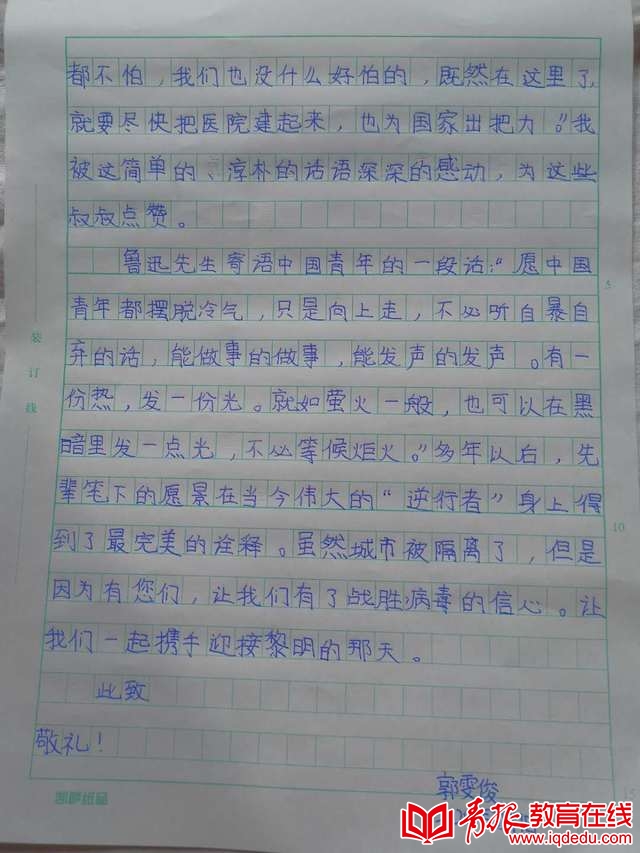 都不怕，我们也没什么好怕的，既然在这里了，
就要尽快把医院建起来，也为国家出把力。”我
被这简单的、淳朴的话语深深的感动，为这些
叔叔点赞。
鲁迅先生寄语中国青年的一段话：“愿中国
青年都摆脱冷气，只是向上走，不必听自暴自
弃的话，能做事的做事，能发声的发声。有一
份热，发一份光。就如萤火一般，也可以在黑
暗里发一点光，不必等候炬火。”多年以后，先
辈笔下的愿景在当今伟大的“逆行者”身上得
到了最完美的诠释。虽然城市被隔离了，但是
因为有您们，让我们有了战胜病毒的信心。让
我们一起携手迎接黎明的那天。
此致
敬礼！
郭雯俊
装订线
5
10
15
青报教育在线
www.iqdedu.com